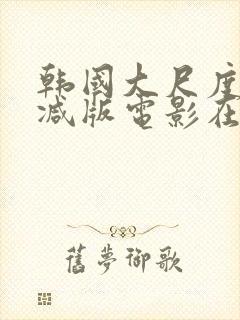 韩國大尺度
减版電影在
舊夢御歌